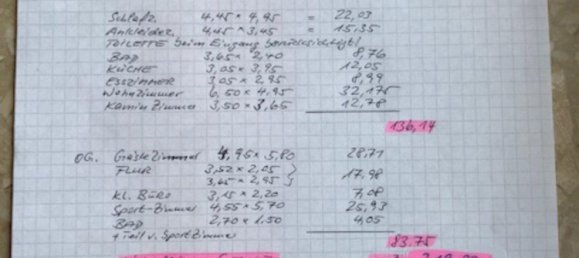 Schlafz. 4,45 x 4,95 = 22,03
Ankleidez. 4,45 x 3,45 = 15,35
TOILETTE beim Eingang berücksichtigt!
BAD 3,65 x 2,40 8,76
KÜCHE 3,05 x 3,95 12,05
ESSZIMMER 3,05 x 2,95 8,99
Wohnzimmer 6,50 x 4,95 32,175
Kaminzimmer 3,50 x 3,65 12,78
136,14
OG. Gästezimmer 4,95 x 5,80 28,71
FLUR 3,52 x 2,05 }
3,65 x 2,95 } 17,98
Kl. Büro 3,15 x 2,20 7,08
Sport-Zimmer 4,55 x 5,70 25,93
BAD 2,70 x 1,50 4,05
+ Teil v. Sportzimmer
83.75